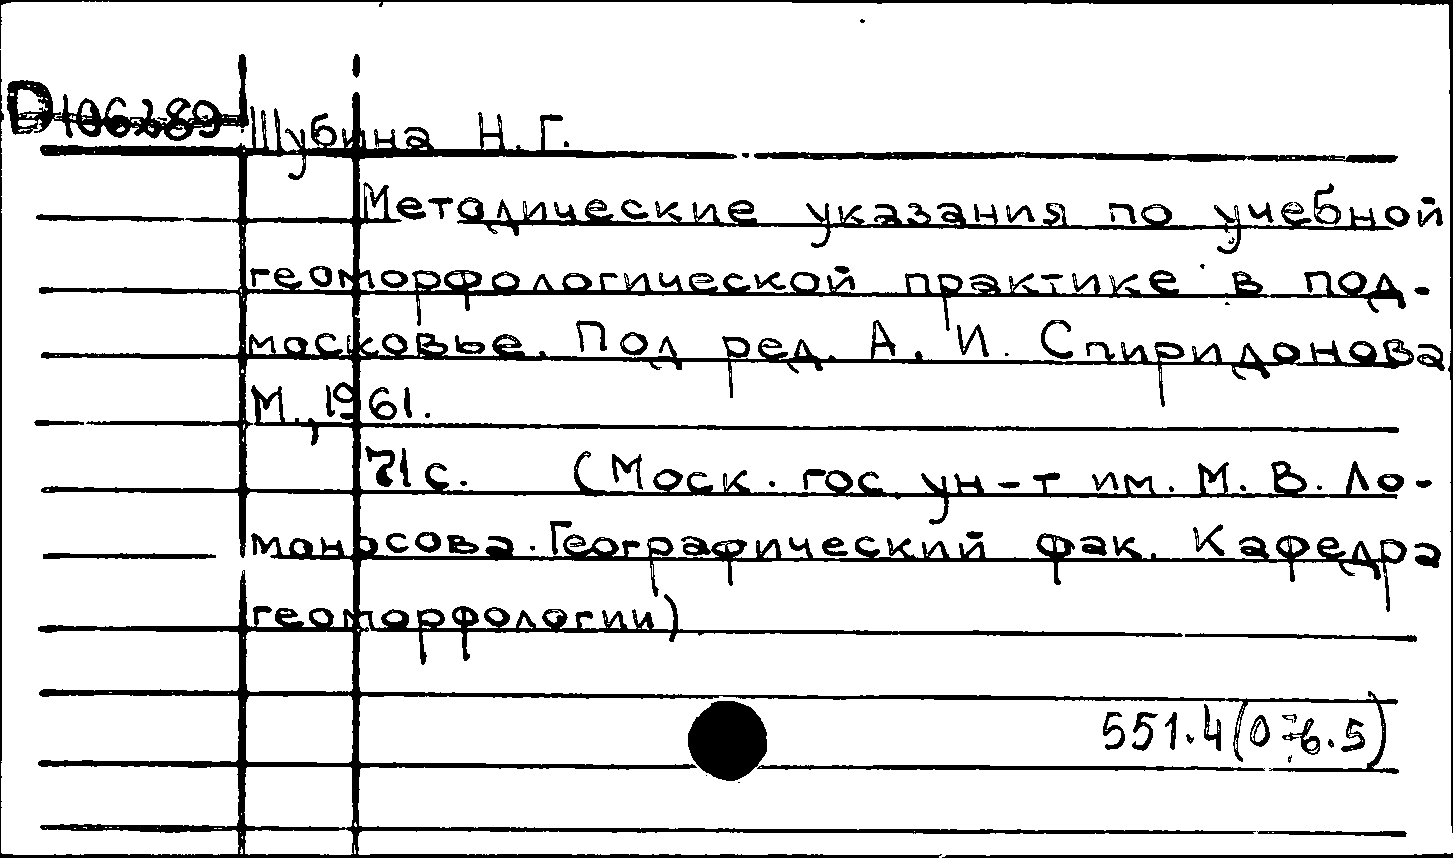 D106289 Шубина Н.Г.
Методические указания по учебной
геоморфологической практике в под-
московье. Под ред. А. И. Спиридонова
М., 1961.
71 с. (Моск. гос. ун-т им. М. В. Ло-
моносова. Географический фак. Кафедра
геоморфологии)